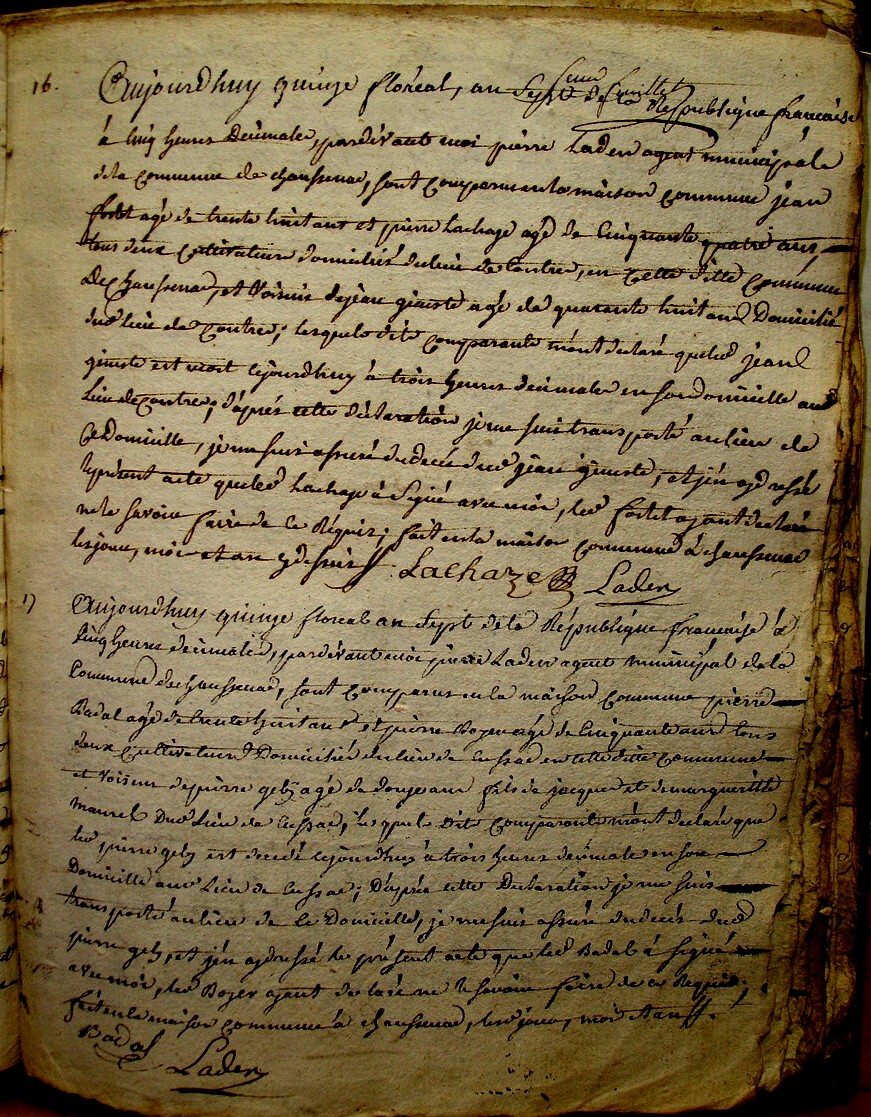 16.
Aujourdhuy quinze floréal, an Sept de la République francaise
à Cinq heures Décimale, pardevant moi pierre Laden agent municipale
de la Commune de chaussenac, sont Comparus en la maison Commune jean
fortet agé de trente huit ans et pierre Lachaze agé de Cinquante quatre ans,
tous deux Cultivateurs domiciliés du lieu de Contres, en Cette ditte Commune
de chaussenac, et Voisins de jean gineste agé de quarante huit ans Domicilié
dud. lieu de Contres; lesquels dits Comparants m'ont declaré que led jean
gineste est mort cejourdhuy à trois heures decimale en son domicille aud
Lieu de Contres; d'après cette déclaration je me suis transporté au lieu de
Ce Domicille, je me suis assuré du decès dud jean gineste, et j'en ay dressé
le présent acte que led Lachaze à Signé avec moi, led fortet ayant declaré
ne le savoir faire de Ce Réquis; fait en la maison Commune à chaussenac
les jour, mois et an que dessus
Lachaze Laden
17
Aujourdhuy quinze floreal an Sept de la République francaise à
Cinq heures decimale, pardevant moi pierre Laden agent municipal de la
Commune de chaussenac, sont Comparus en la maison Commune pierre
Badal agé de trente huit ans et pierre Boyer agé de Cinquante ans tous
deux Cultivateurs Domiciliés du lieu de Cussac en cette ditte Commune
et Voisins de pierre gely agé de douze ans fils de jacques et de margueritte
maurel Dud Lieu de Cussac, lesquels Dits Comparants m'ont declaré que
led pierre gely est decedé cejourdhuy à trois heures decimale en son
Domicille aud Lieu de Cussac; D'après cette Declaration je me suis
transporté au lieu de Ce Domicille, je me suis assuré du decès dud
pierre gely, et j'en ay dressé le présent acte que led Badal à signé
avec moi, led Boyer ayant declaré ne le savoir faire de ce Requis;
fait en la maison commune à chaussenac, les jour, mois et an
Badal Laden